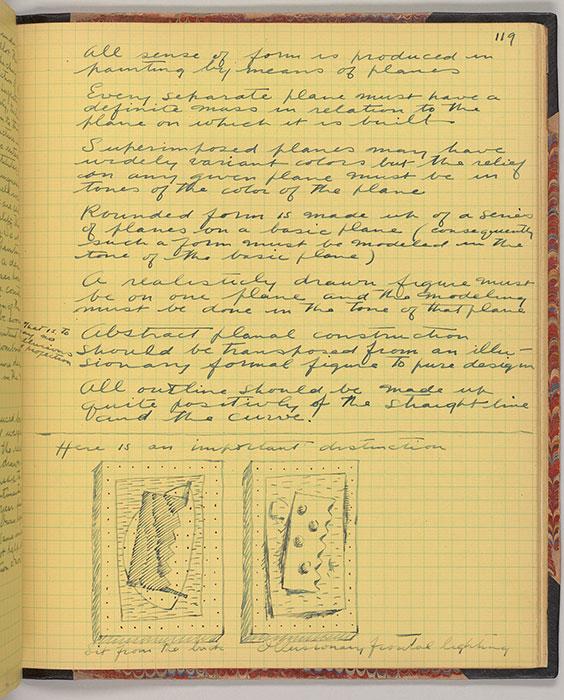 119
All sense of form is produced in
painting by means of planes
Every separate plane must have a
definite mass in relation to the
plane on which it is built
Superimposed planes may have
widely variant colors but the relief
on any given plane must be in
tones of the color of the plane
Rounded form is made up of a series
of planes on a basic plane (consequently
such a form must be modeled in the
tone of the basic plane)
A realisticly drawn figure must
be on one plane and the modeling
must be done in the tone of that plane
That is to
Abstract planal construction
should be transposed from an illu-
sionary formal figure to pure design
All outline should be made up
quite positively of the straight line
and the curve.
Here is an important distinction
Lit from the back
Illusionary frontal lighting